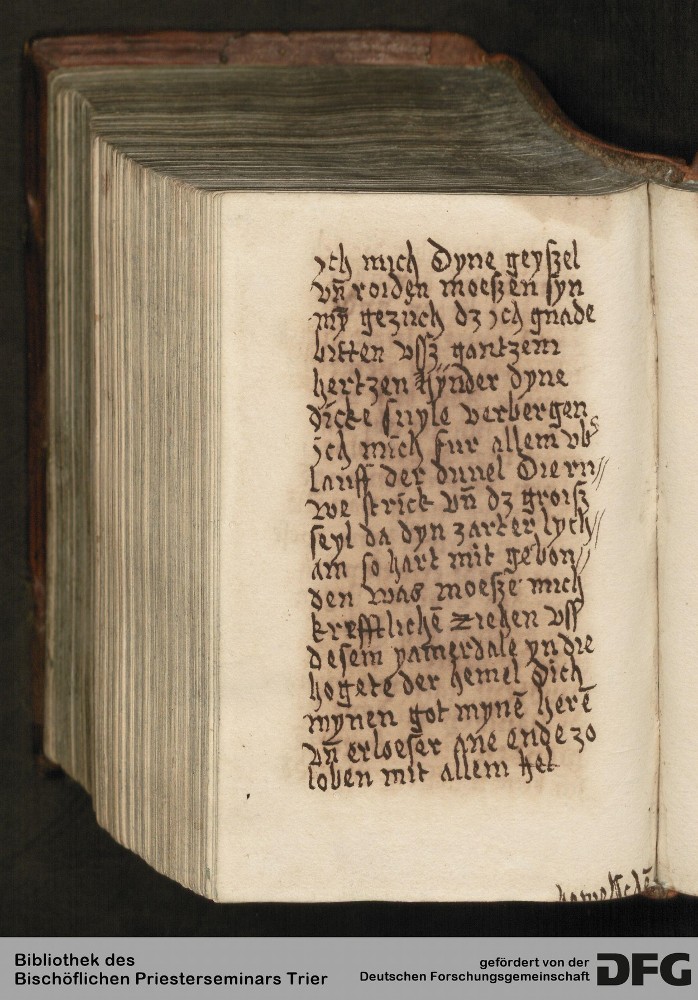 ich mich dyne geyszel
vn̄ roiden moeszen syn
mȳ gezuch dz ich gnade
bitten vsz gantzem
hertzen hynder dyne
dicke suyle verbergen
ich mich fur allem vb
lauff der duuel Die ru//
we strick vn̄ dz groisz
seyl da dyn zarter lych//
am so hart mit gebon//
den was moesze mich
krefftlichē ziehen vsz
desem yamerdale yn die
hogete der hemel dich
mynen got mynē herē
vn̄ erloeser ane ende zo
loben mit allem hel
Bibliothek des
Bischöflichen Priesterseminars Trier
gefördert von der
Deutschen Forschungsgemeinschaft
DFG